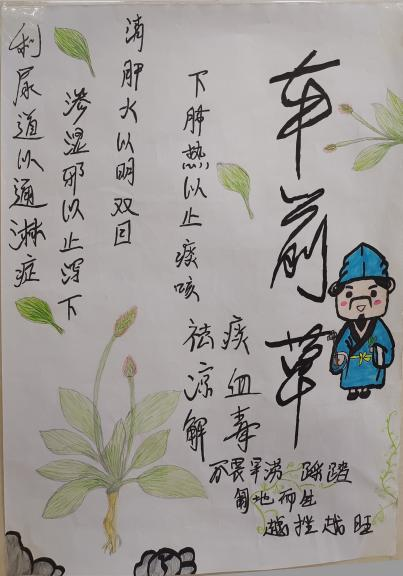 车前草
下肺热以止痰咳
祛痰
凉血
解毒
清肝火以明双目
渗湿邪以止泻下
利尿道以通淋症
不畏旱涝 踩踏
匍地而生
越挫越旺